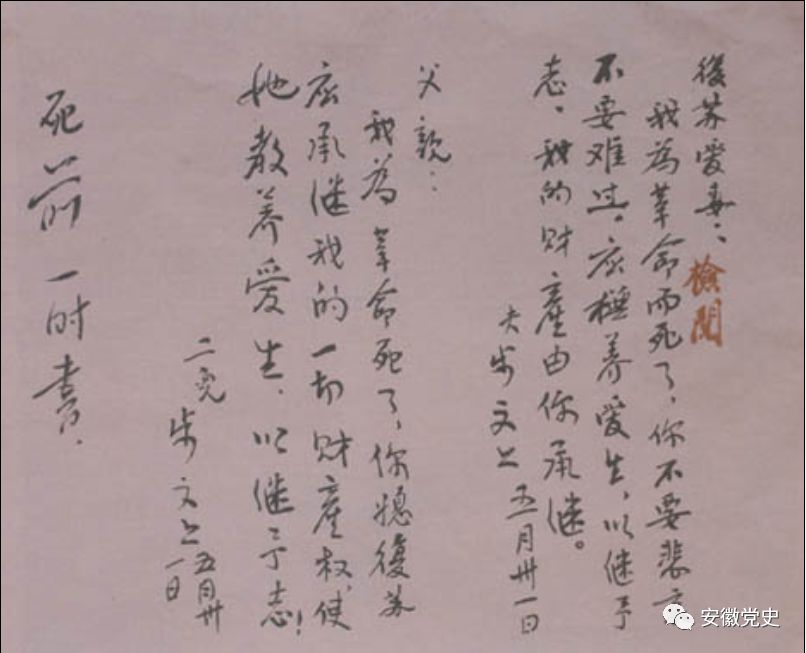 復苏爱妻：
检閲
我為革命而死了，你不要悲哀
不要难过。应撫养爱生，以继予
志。我的财產由你承继。
夫步文上 五月卅一日
父親：
我為革命死了，你媳復苏
应承继我的一切财產权，使
她教养爱生，以继予志！
二兒步文上五月卅
一日
死前一时書.
安徽党史